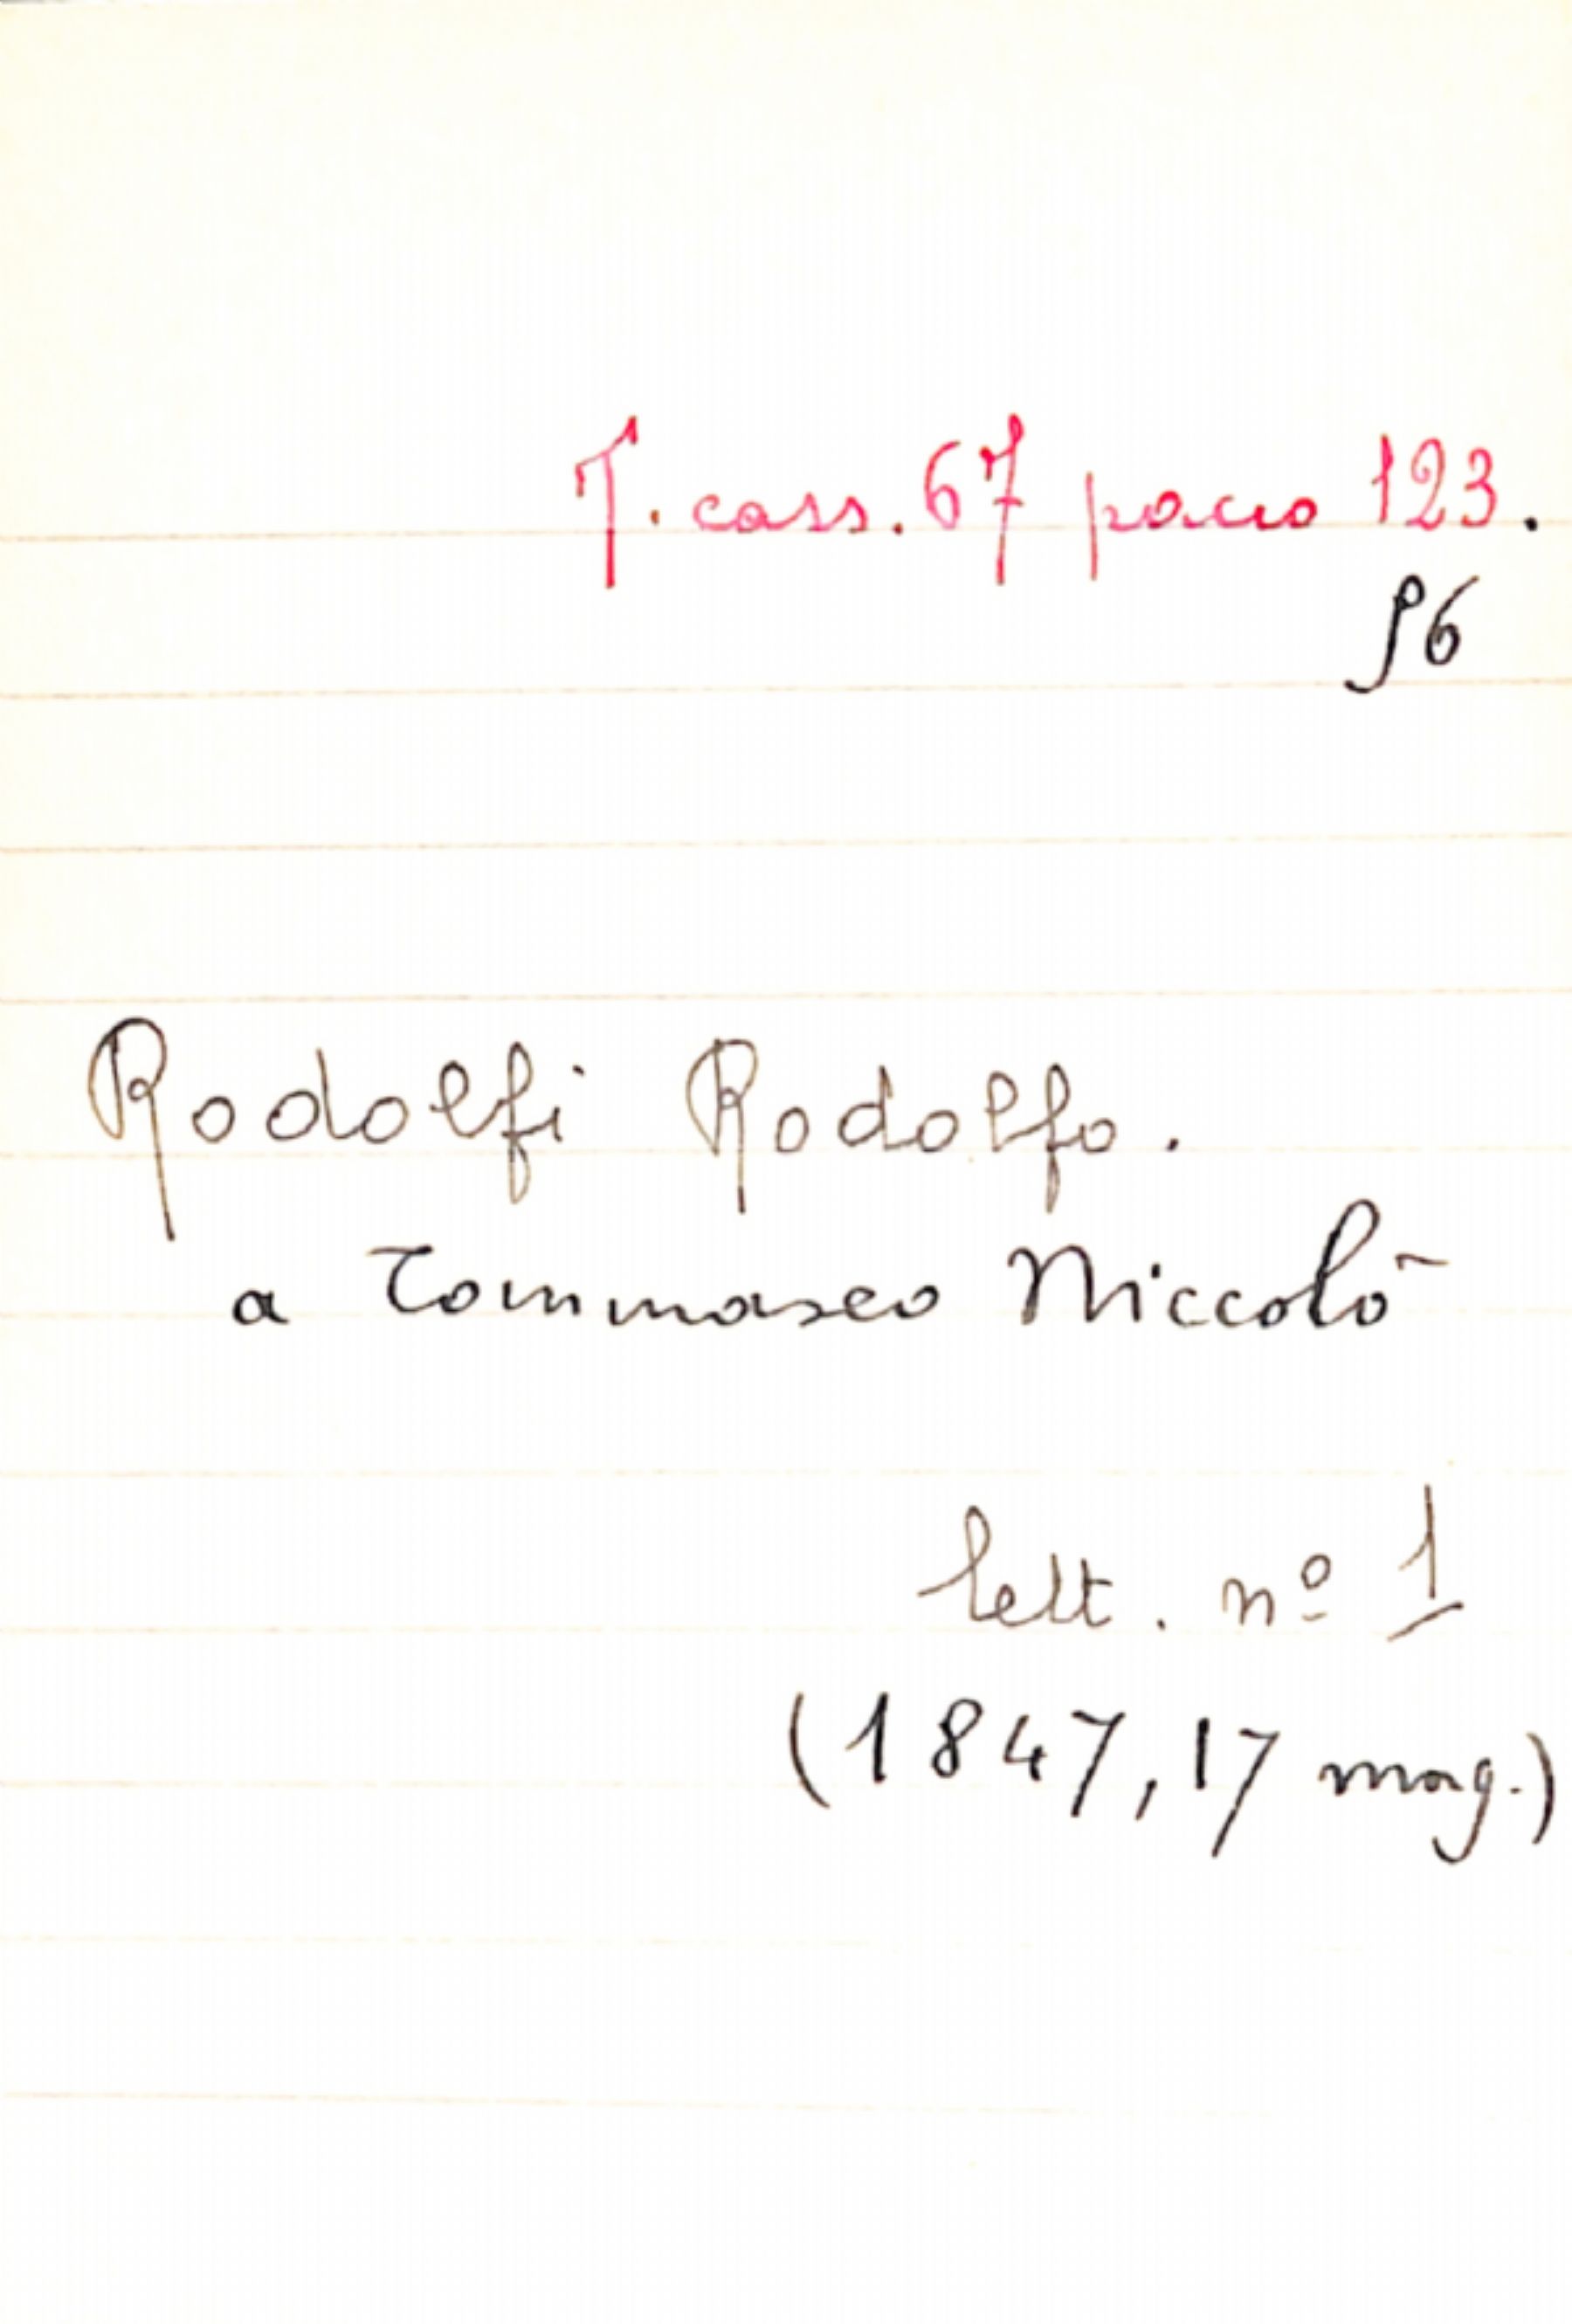 T. cass. 67 pacco 123.
96
Rodolfi Rodolfo.
a Tommaseo Niccolò
lett. nº 1
(1847, 17 mag.)